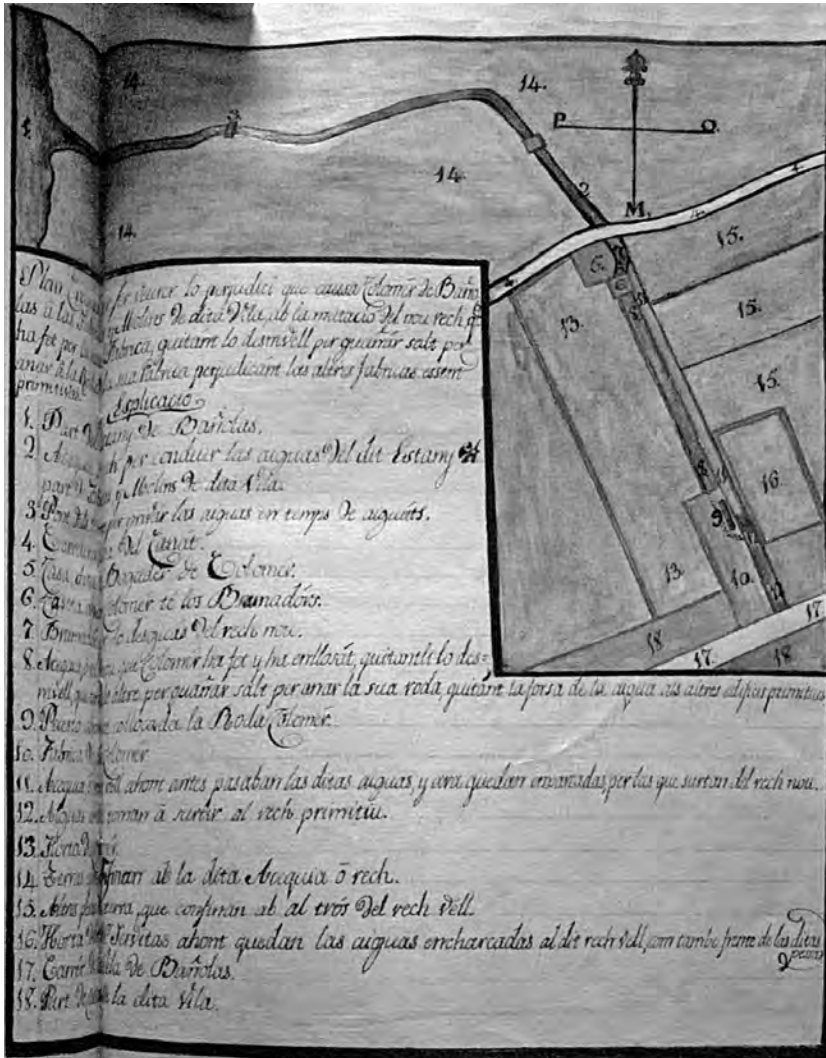 14.
14.
1.
3
P
O.
14.
2
4.
M.
4.
14.
15.
4
6.
13.
15.
15.
16.
8
9
13.
10.
18
17.
17.
18
Plan per veurer lo perjudici que causa Colomer de Baño
las á las y Molins de dita Vila, ab la mutació del nou rech q.
ha fet per la Fabrica, quitant lo desnivell per guañar salt per
anar á la sua Fabrica perjudicant las altres fabricas essent
primitivas
Explicació
1. Part del Estany de Bañolas.
2. Acequia rech per conduir las aiguas del dit Estany
y Molins de dita Vila.
3. per privar las aiguas en temps de aiguats.
4. del Canat.
5. Casa Bogader de Colomer.
6. Caseta Colomer té los Bramadórs.
7. lo desguas del rech nou.
8. Acequia que Colomer ha fet y ha enllosát, quitantli lo des=
nivell, per guañar salt per anar la sua roda, quitant la forsa de la aigua als altres edificis primitius
9. Puesto collocada la Roda Colomer.
10. Fabrica Colomer
11. Acequia vell ahont antes pasaban las ditas aiguas, y ara quedan per las que surtan del rech nou.
12. tornan á surtir al rech primitiu.
13. Horta
14. ab la dita Acequia ó rech.
15. Altres terra, que confinan ab al trós del rech vell.
16. Horta Servitas ahont quedan las aiguas encharcadas al dit rech vell, com tambe frente de las ditas
17. Carrér de Bañolas.
18. Part de la dita Vila.